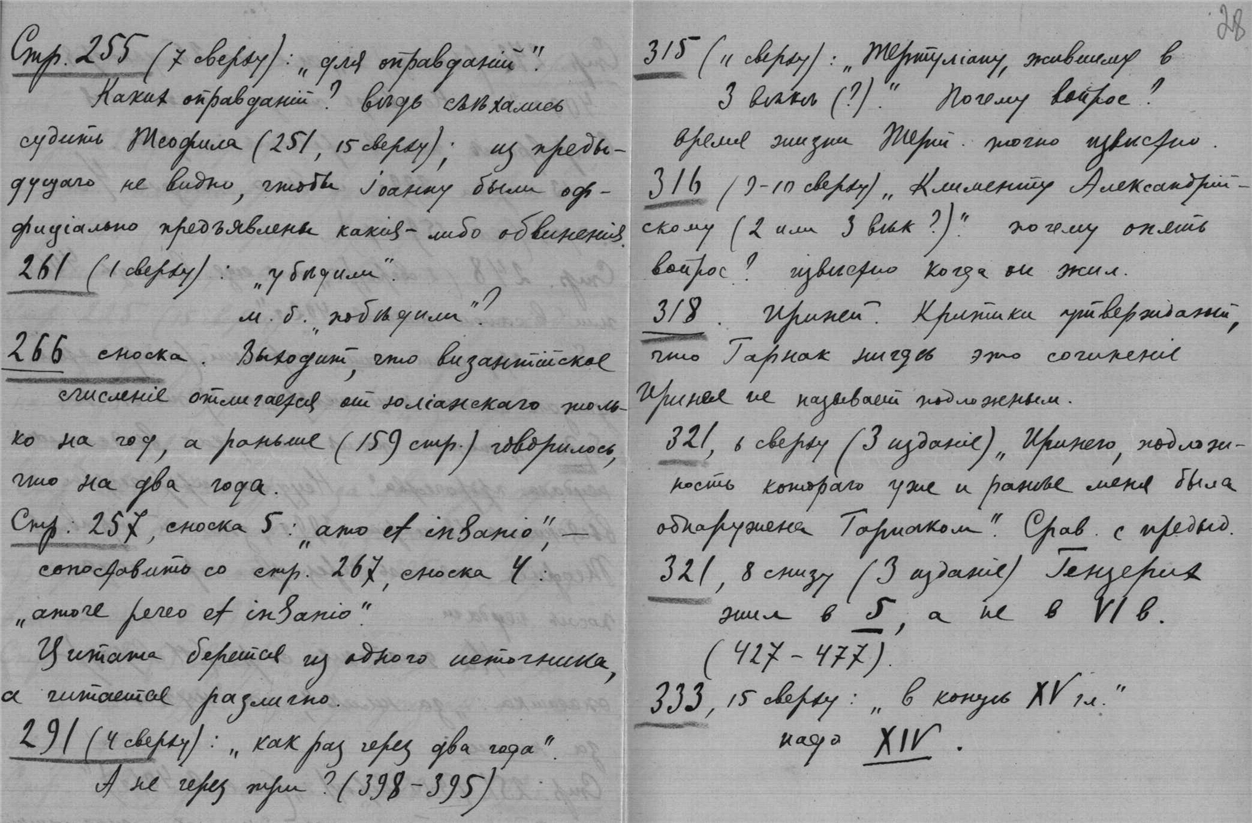 Стр. 255 (7 сверху): „для оправданій“.
Каких оправданій? вѣдь съѣхались
судить Теофила (251, 15 сверху); из преды-
дущаго не видно, чтобы Іоанну были оф-
фиціально предъявлены какія-либо обвиненія.
261 (1 сверху): „убѣдили“
м. б. „побѣдили“?
266 сноска. Выходит, что византійское
счисленіе отличается от юліанскаго толь-
ко на год, а раньше (159 стр.) говорилось,
что на два года.
Стр. 257, сноска 5: „amo et insanio“, —
сопоставить со стр. 267, сноска 4:
„amore pereo et insanio“.
Цитата берется из одного источника,
а читается различно.
291 (4 сверху): „как раз через два года“.
А не через три? (398–395)
28
315 (11 сверху): „Тертуліану, жившему в
3 вѣкѣ (?).“ Почему вопрос?
время жизни Терт. точно извѣстно.
316 (9-10 сверху) „Клименту Александрій-
скому (2 или 3 вѣк?)“ почему опять
вопрос? извѣстно когда он жил.
318. Ириней. Критики утверждают,
что Гарнак нигдѣ это сочиненіе
Иринея не называет подложным.
321, 6 сверху (3 изданіе) „Иринею, подлож-
ность котораго уже и раньше меня была
обнаружена Гарнаком“. Срав. с предыд.
321, 8 снизу (3 изданіе) Гензерих
жил в 5, а не в VI в.
(427–477).
333, 15 сверху: „в концѣ XV гл.“
надо XIV.